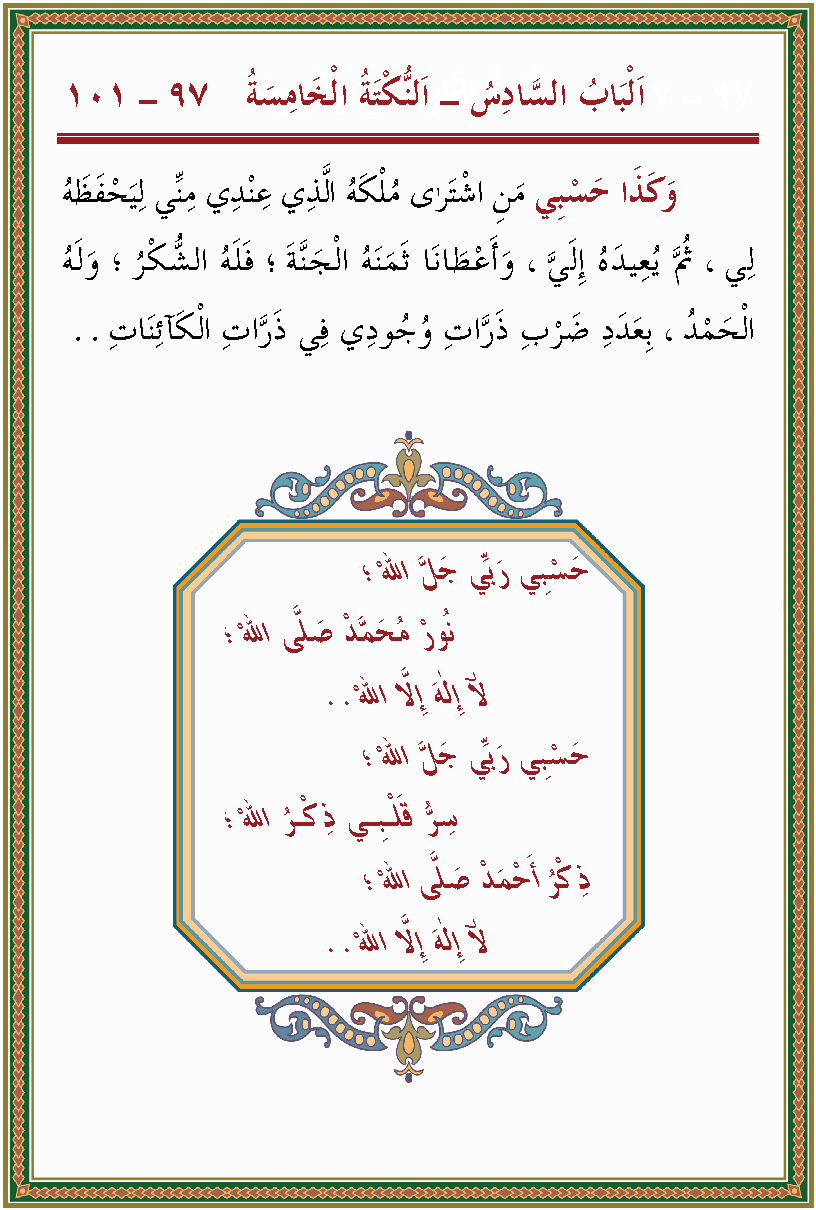 اَلْبَابُ السَّادِسُ – اَلنُّكْتَةُ الْخَامِسَةُ ٩٧ – ١٠١
وَكَذَا حَسْبِي مَنِ اشْتَرٰى مُلْكَهُ الَّذِي عِنْدِي مِنِّي لِيَحْفَظَهُ
لِي ، ثُمَّ يُعِيدَهُ إِلَيَّ ، وَأَعْطَانَا ثَمَنَهُ الْجَنَّةَ ؛ فَلَهُ الشُّكْرُ ؛ وَلَهُ
الْحَمْدُ ، بِعَدَدِ ضَرْبِ ذَرَّاتِ وُجُودِي فِي ذَرَّاتِ الْكَآئِنَاتِ . .
حَسْبِي رَبِّي جَلَّ اللهْ ؛
نُورْ مُحَمَّدْ صَلَّى اللهْ ؛
لَآ إِلٰهَ إِلَّا اللهْ . .
حَسْبِي رَبِّي جَلَّ اللهْ ؛
سِرُّ قَلْبِي ذِكْرُ اللهْ ؛
ذِكْرُ أَحْمَدْ صَلَّى اللهْ ؛
لَآ إِلٰهَ إِلَّا اللهْ . .